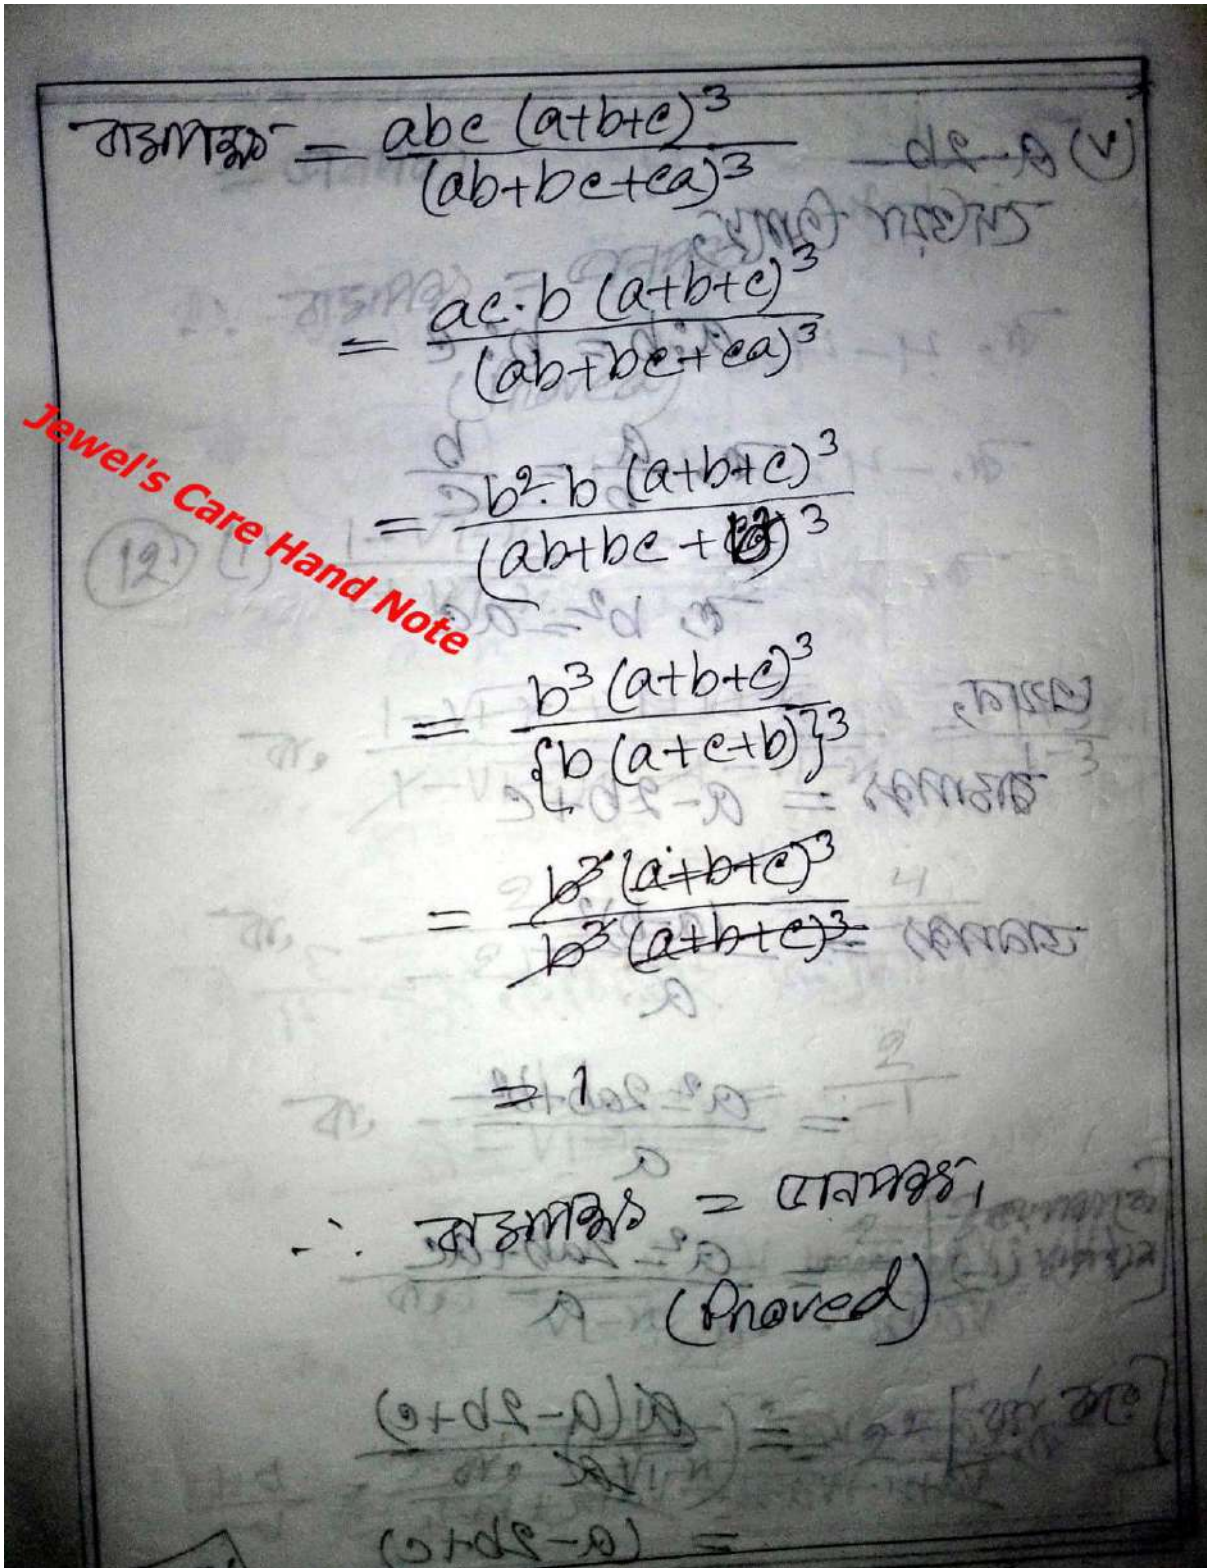 বামপক্ষ = abc (a+b+c)³ / (ab+bc+ca)³
= ac·b (a+b+c)³ / (ab+bc+ca)³
Jewel's Care Hand Note
= b²·b (a+b+c)³ / (ab+bc+b²)³
= b³ (a+b+c)³ / {b (a+c+b)}³
= b³ (a+b+c)³ / b³ (a+b+c)³
= 1
∴ বামপক্ষ = ডানপক্ষ,
(Proved)